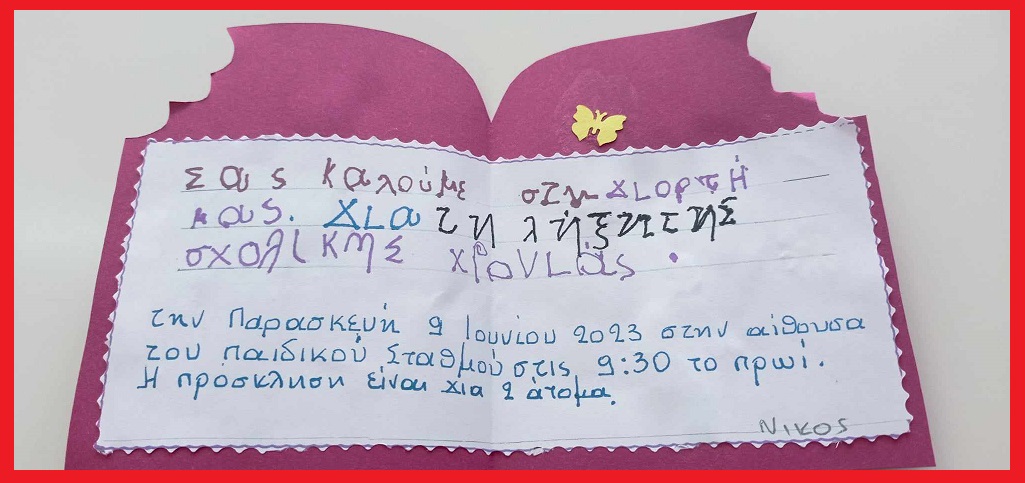 Σας καλούμε στην γιορτΉ
μας. για τη λήξητης
σχολικης χρονιάς.
την Παρασκευή 9 Ιουνίου 2023 στην αίθουσα
του παιδικού Σταθμού στις 9:30 το πρωί.
Η πρόσκληση είναι για 2 άτομα.
Νικος